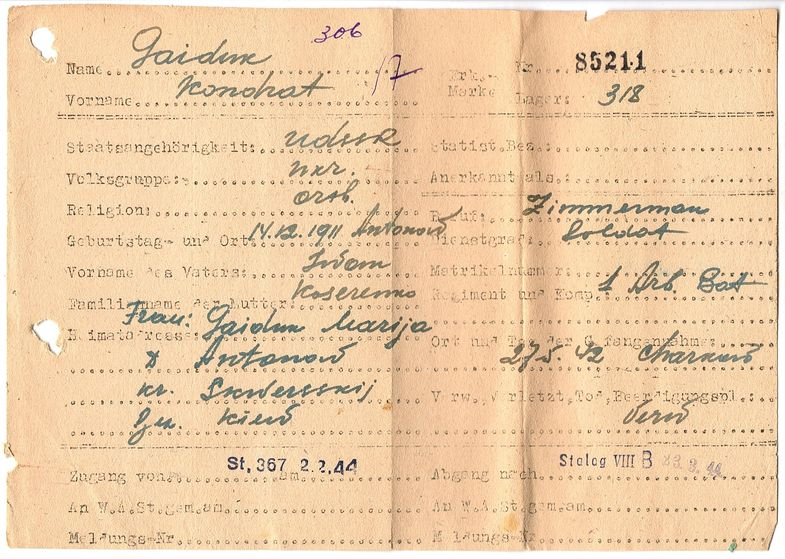 306
Name Gaiduk
Vorname Kondrat 17
Erk.- Nr. 85211
Marke Lager: 318
Staatsangehörigkeit: UdSSR
Volksgruppe: ukr.
Religion: orth.
Geburtstag- und Ort: 14.12.1911 Antonow
Vorname des Vaters: Iwan
Familienname der Mutter: Koserenko
Heimatadresse: Frau: Gaiduk Marija
Antonow
kr. Skwersskij
Gez. Kiew
Statist.Bez.
Anerkannt als:
Beruf: Zimmerman
Dienstgrad: Soldat
Matrikelnummer:
Regiment und Komp. 1 Arb. Bat
Ort und Tag der Gefangennahme:
27.5.42 Charkow
Verw., Verletzt, Tod, Beerdigungspl.:
Zugang von: St, 367 am 2.2.44
An W.A.St.gem.am.
Meldungs-Nr.
Abgang nach Stalag VIII B 23.3.44
An W.A.St.gem.am.
Meldungs-Nr.